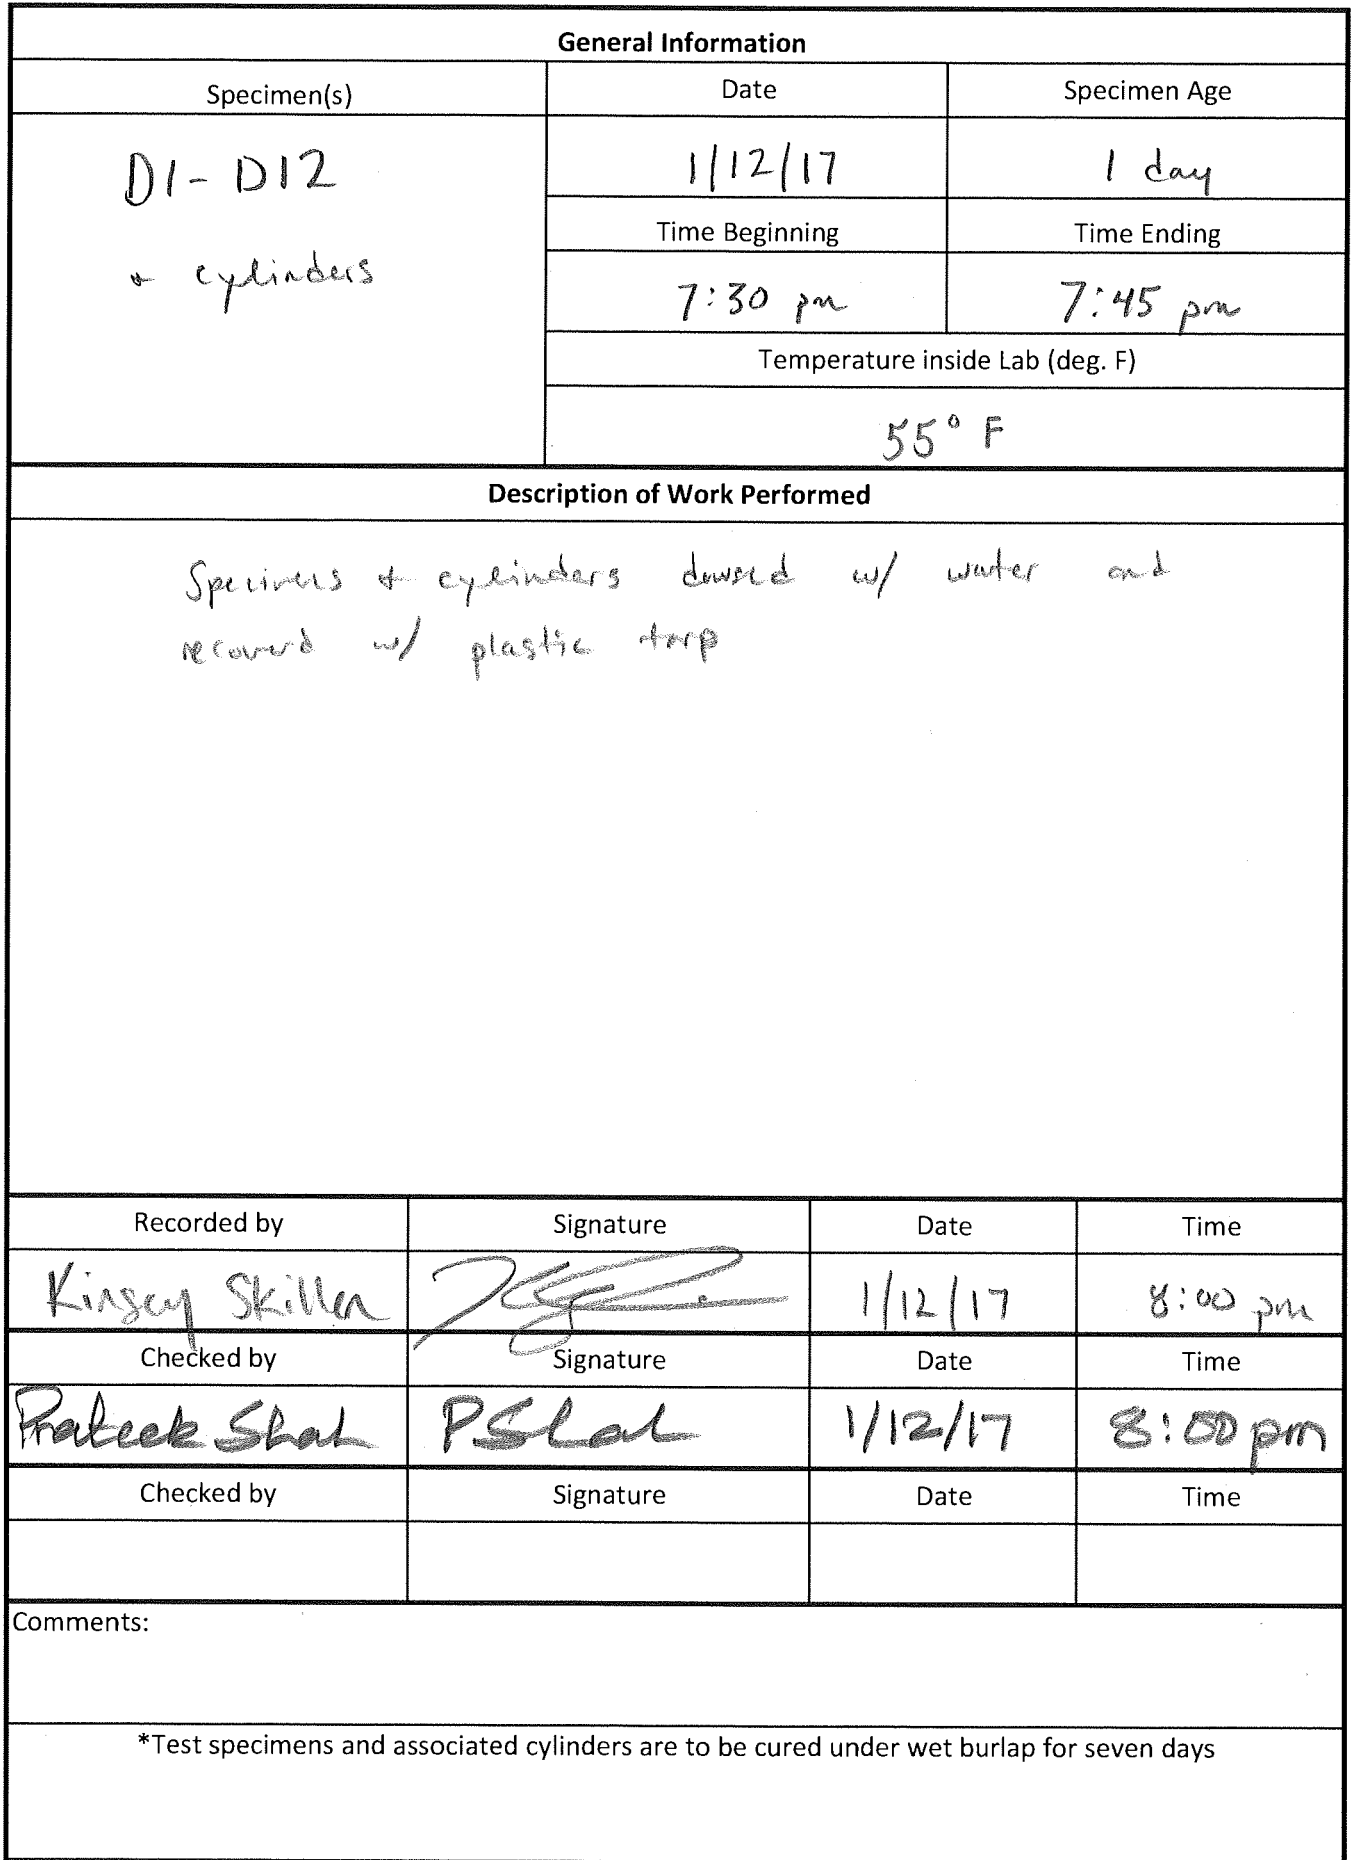 General Information
Specimen(s) Date Specimen Age
D1- D12 1/12/17 1 day
Time Beginning Time Ending
+ cylinders 7:30 pm 7:45 pm
Temperature inside Lab (deg. F)
55° F
Description of Work Performed
Specimens + cylinders dowsed w/ water and
recovered w/ plastic tarp
Recorded by Signature Date Time
Kinsey Skillen 1/12/17 8:00 pm
Checked by Signature Date Time
Prateek Shah PShah 1/12/17 8:00 pm
Checked by Signature Date Time
Comments:
*Test specimens and associated cylinders are to be cured under wet burlap for seven days